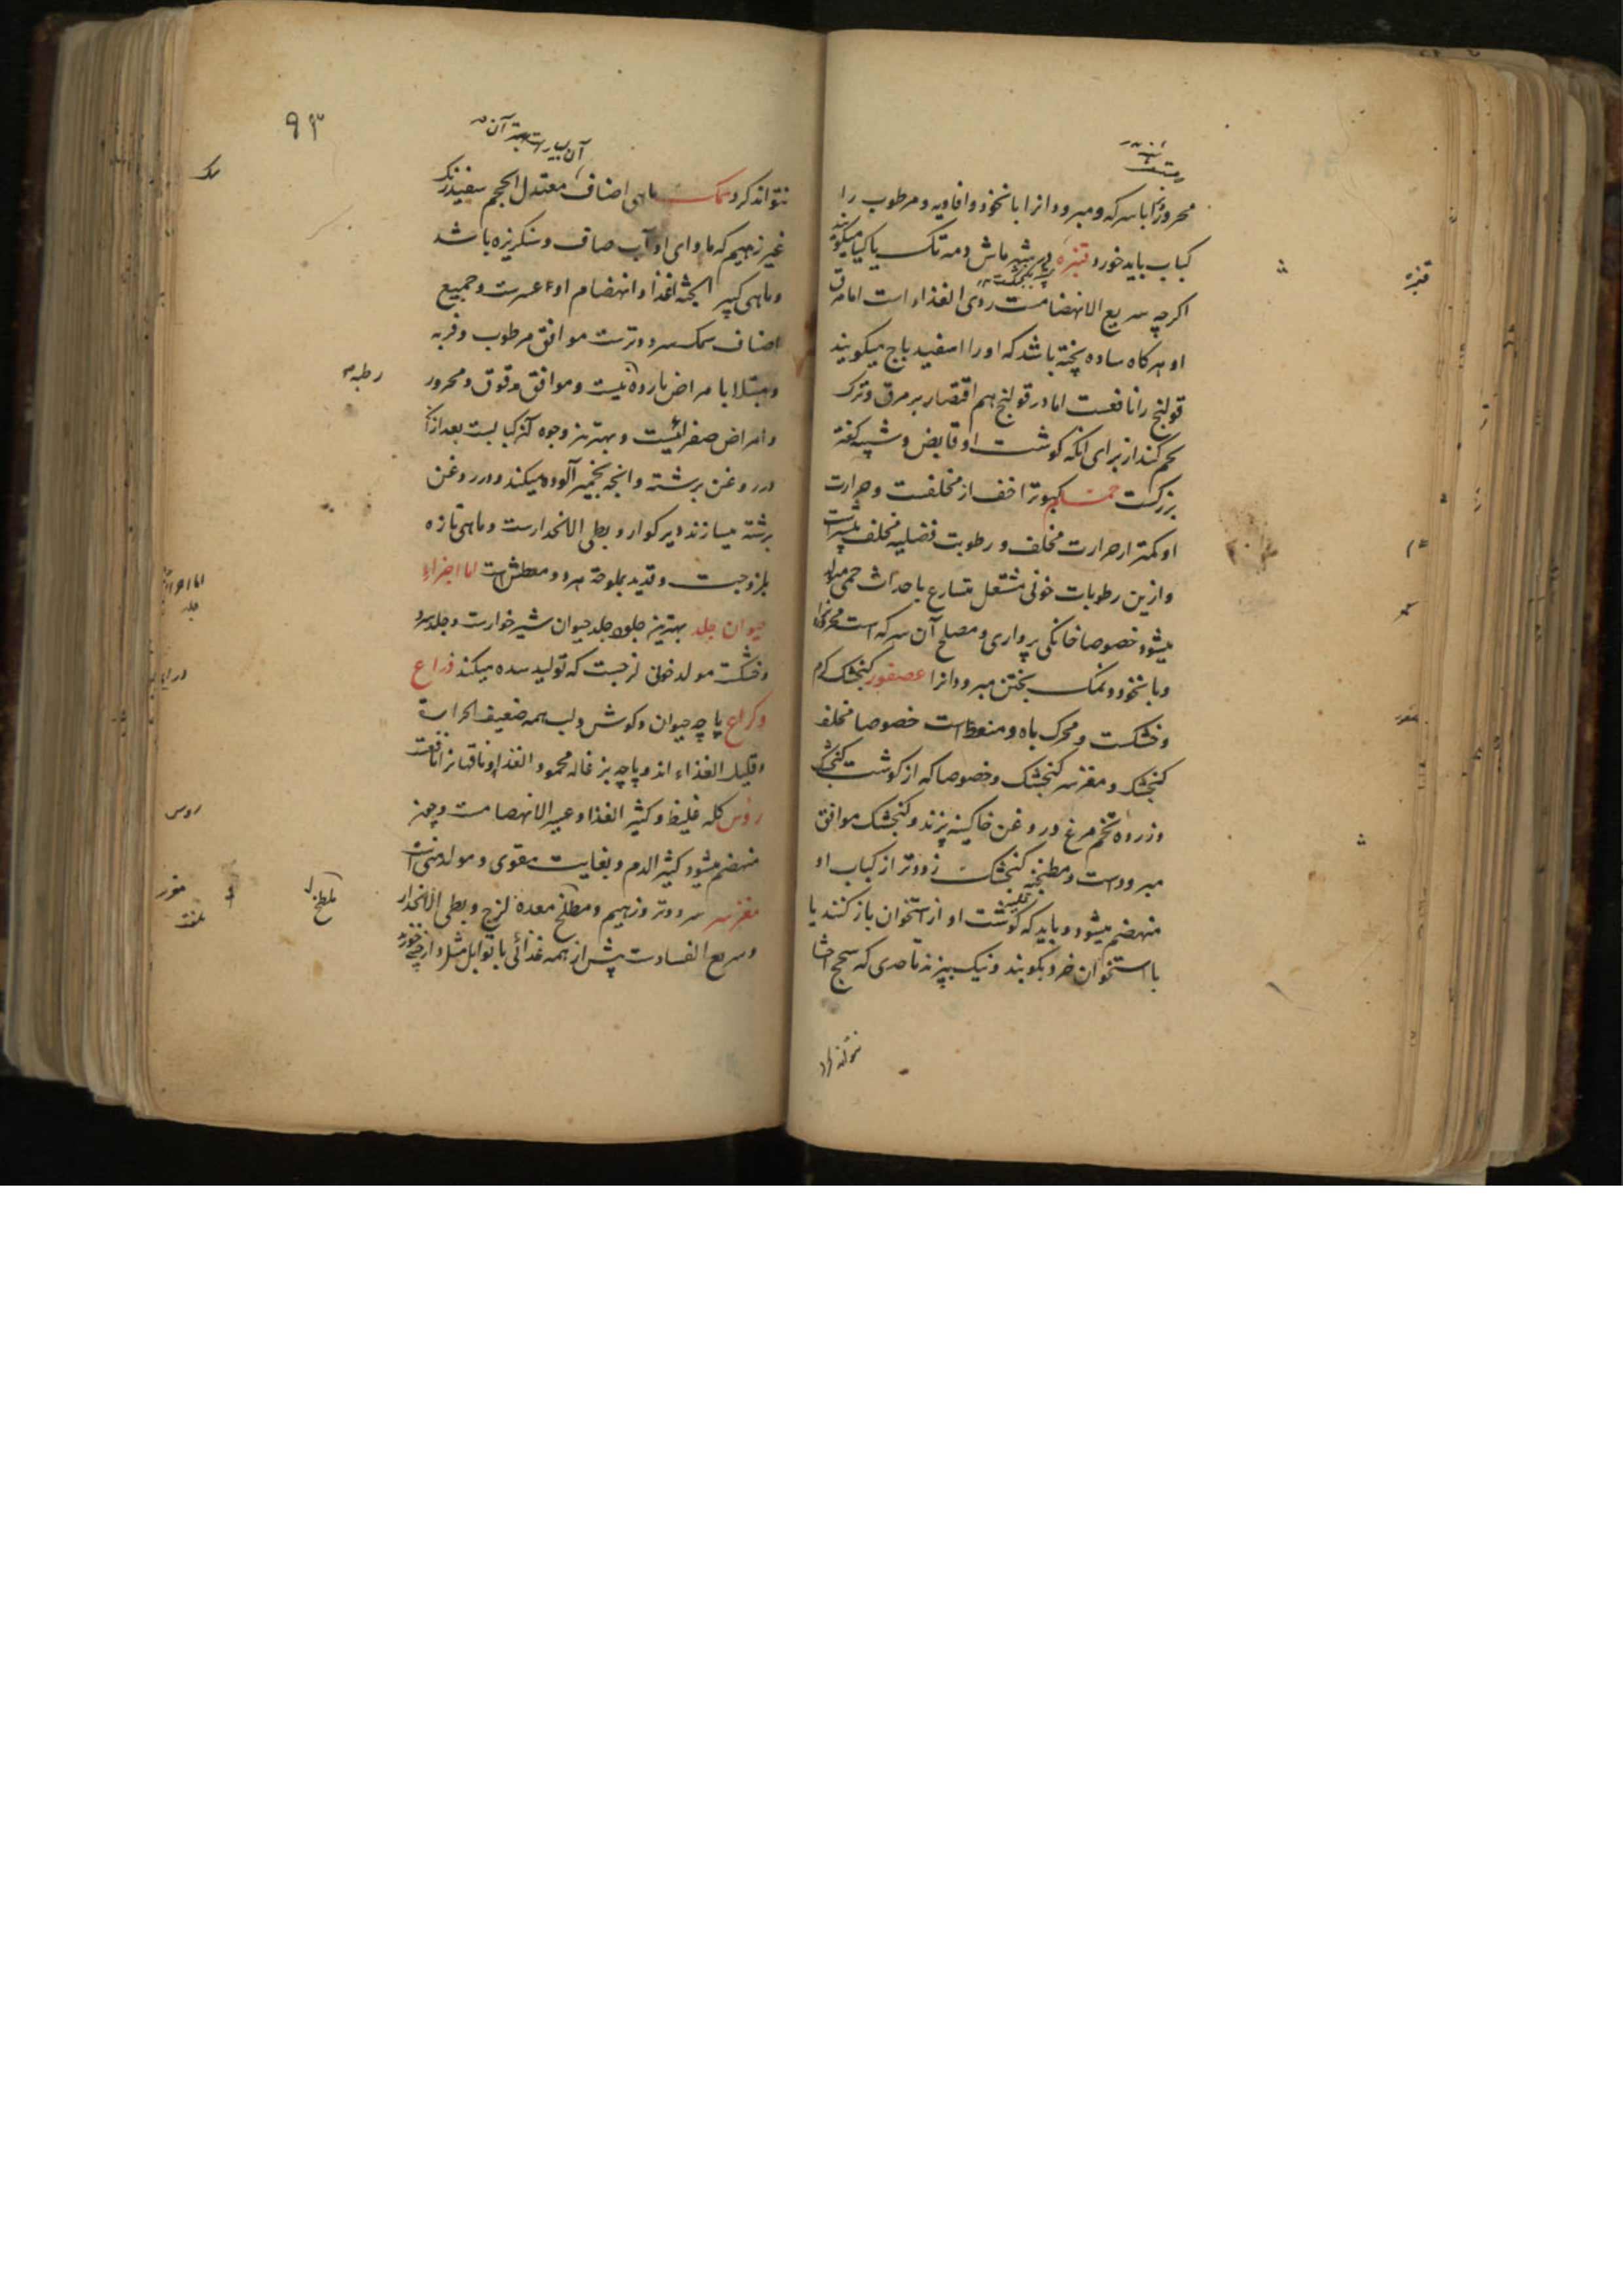 محرورانرا با سرکه و مبرودانرا با نخود و افاویه و مرطوب را
کباب باید خورد قنبره میگویند
اکرچه سریع الانهضامست ردی الغذاء است اما مرق
او هرکاه ساده پخته باشد که او را اسفیدباج میکویند
قولنج را نافعست اما در قولنج هم اقتصار بر مرق و ترک
لحم کنند از برای انکه کوشت او قابض و شبیه کفته
بزرکست حمام کبوتر اخف از مخلفست و حرارت
او کمتر از حرارت مخلف و رطوبت فضلیه مخلف بیشتر است
و ازین رطوبات خونی مشتعل متسارع باحداث حمی میشود
خصوصا خانکی پرواری و مصلح آن سرکه است محرورانرا
و با نخود و نمک پختن مبرودانرا عصفور کنجشک کرم
و خشکست و محرک باه و منعظ است خصوصا مخلف
کنجشک و مغز سر کنجشک و خصوصا که از کوشت کنجشک
و زرده تخم مرغ در روغن خاکینه پزند و کنجشک موافق
مبرودست و مطنجه کنجشک زودتر از کباب او
منهضم میشود و باید که کوشت او از استخوان باز کنند یا
با استخوان خرد بکوبند و نیک بپزند تا حدی که سحج احشا
نتواند کرد
قنبره
۹۳
آن بسیار است بهترین آن
نتواند کرد سمک ماهی اصناف معتدل الحجم سفید رنک
غیر زهیم که ماوای او آب صاف و سنکریزه باشد
و ماهی کبیر الجثه اغذا و انهضام او اعسرست و جمیع
اصناف سمک سرد و ترست موافق مرطوب و فربه
و مبتلا بامراض بارده نیست و موافق مدقوق و محرور
و امراض صفرائیست و بهترین وجوه آن کبابست بعد از آن
در روغن برشته و آنچه بخمیر آلوده میکنند و در روغن
برشته میسازند دیرکوار و بطی الانحدارست و ماهی تازه
بلزوجت و قدید بملوحة مبرد و معطش است اما اجزاء
حیوان جلد بهترین جلود جلد حیوان شیرخوارست و جلد سرد
و خشکست مولد خونی لزجست که تولید سده میکند ذراع
و کراع پاچه حیوان و کوش و لب همه ضعیف الحرارة
و قلیل الغذاء اند و پاچه بزغاله محمود الغذا و ناقهانرا نافعست
روس کله غلیظ و کثیر الغذا و عسیر الانهضامست و چون
منهضم میشود کثیر الدم و بغایت مقوی و مولد منی است
مغز سر سرد و تر و زهیم و ملطخ معده لزج و بطی الانحدار
و سریع الفسادست پیش از همه غذائی با توابل مثل دارچینی خورند
سمک
رطبه
روس
ملطخ